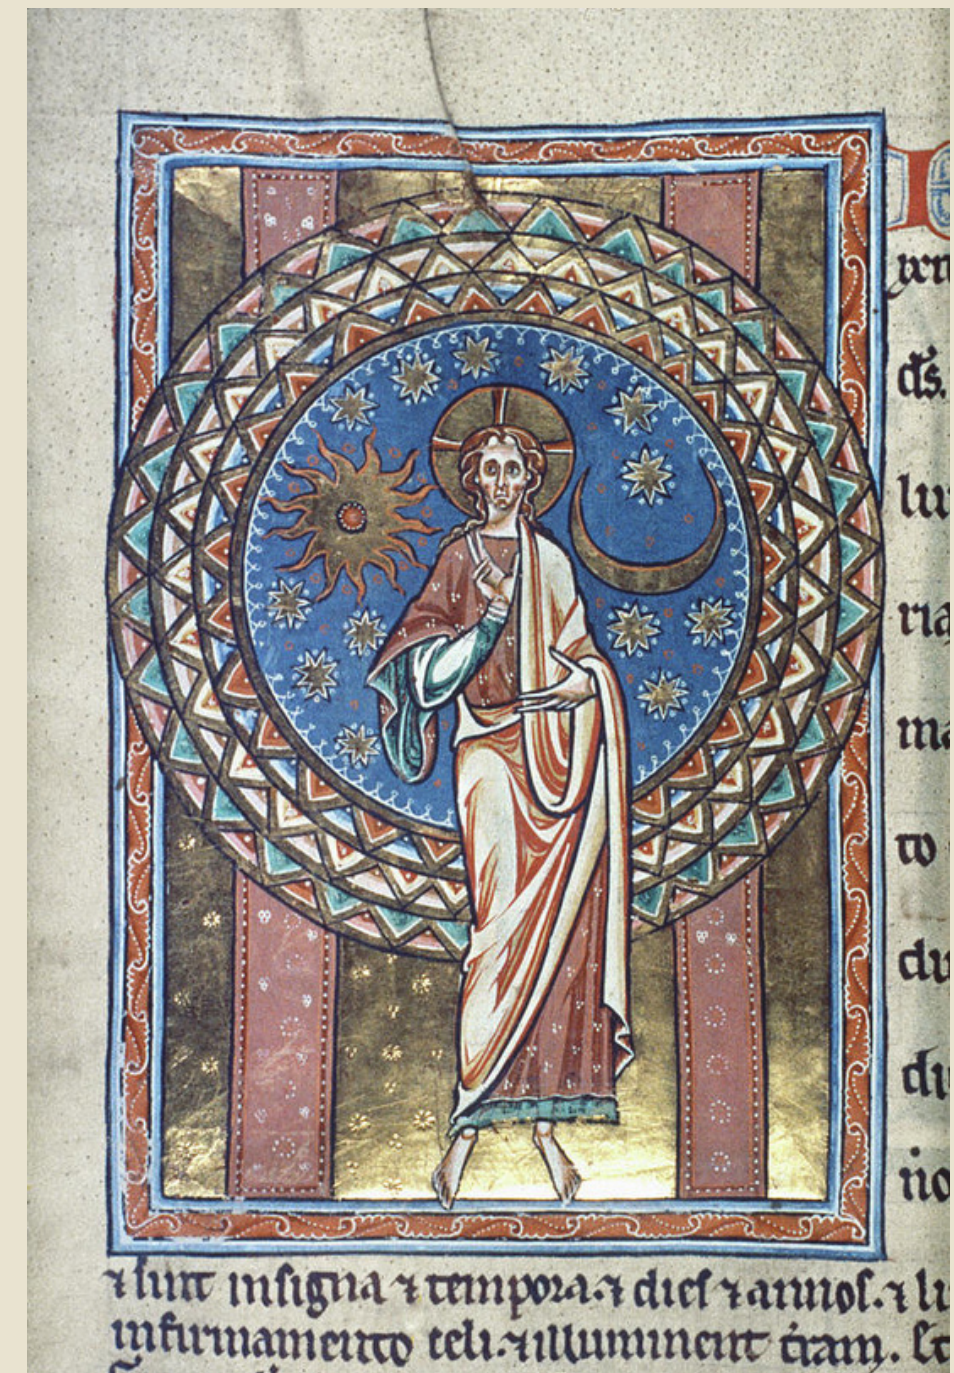 ixn
ds.
lu
ria
ma
to
du
du
no
⁊ sint insigna ⁊ tempora. ⁊ dies ⁊ annos. ⁊ lu
infirmamento celi. ⁊ illuminent t̄ram. Et